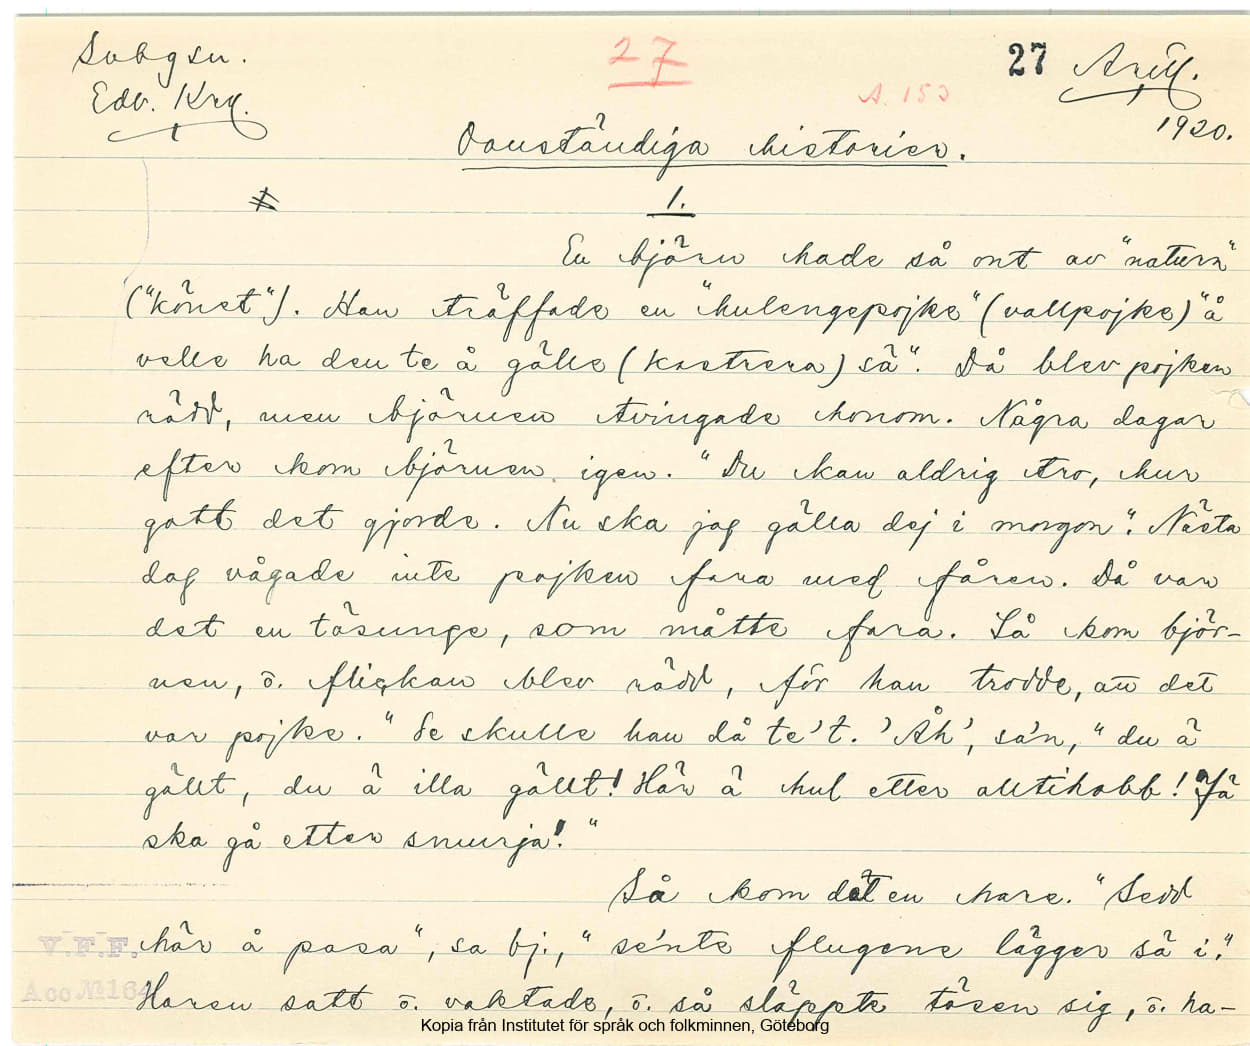 27
27
A. 153
1920.
Oanständiga historier.
1.
En björn hade så ont av "naturn"
("könet"). Han träffade en "hulengepojke" (vallpojke) "å
velle ha den te å gälle (kastrera) sä". Då blev pojken
rädd, men björnen tvingade honom. Några dagar
efter kom björnen igen. "Du kan aldrig tro, hur
gott det gjorde. Nu ska jag gälla dej i morgon". Nästa
dag vågade inte pojken fara med fåren. Då var
det en tösunge, som måtte fara. Så kom björ-
nen, o. flickan blev rädd, för han trodde, att det
var pojke. "Se skulle han då te't. 'Åh', sa'n, "du ä
gällt, du ä illa gällt! Här ä hul etter alltihobb! Jä
ska gå etter smurja!"
Så kom det en hare. "Sedd
här å passa", sa bj., "se'nte flugene lägger sä i."
Haren satt o. vaktade, o. så släppte tösen sig, o. ha-
V.F.F.
Acc № 164
Kopia från Institutet för språk och folkminnen, Göteborg